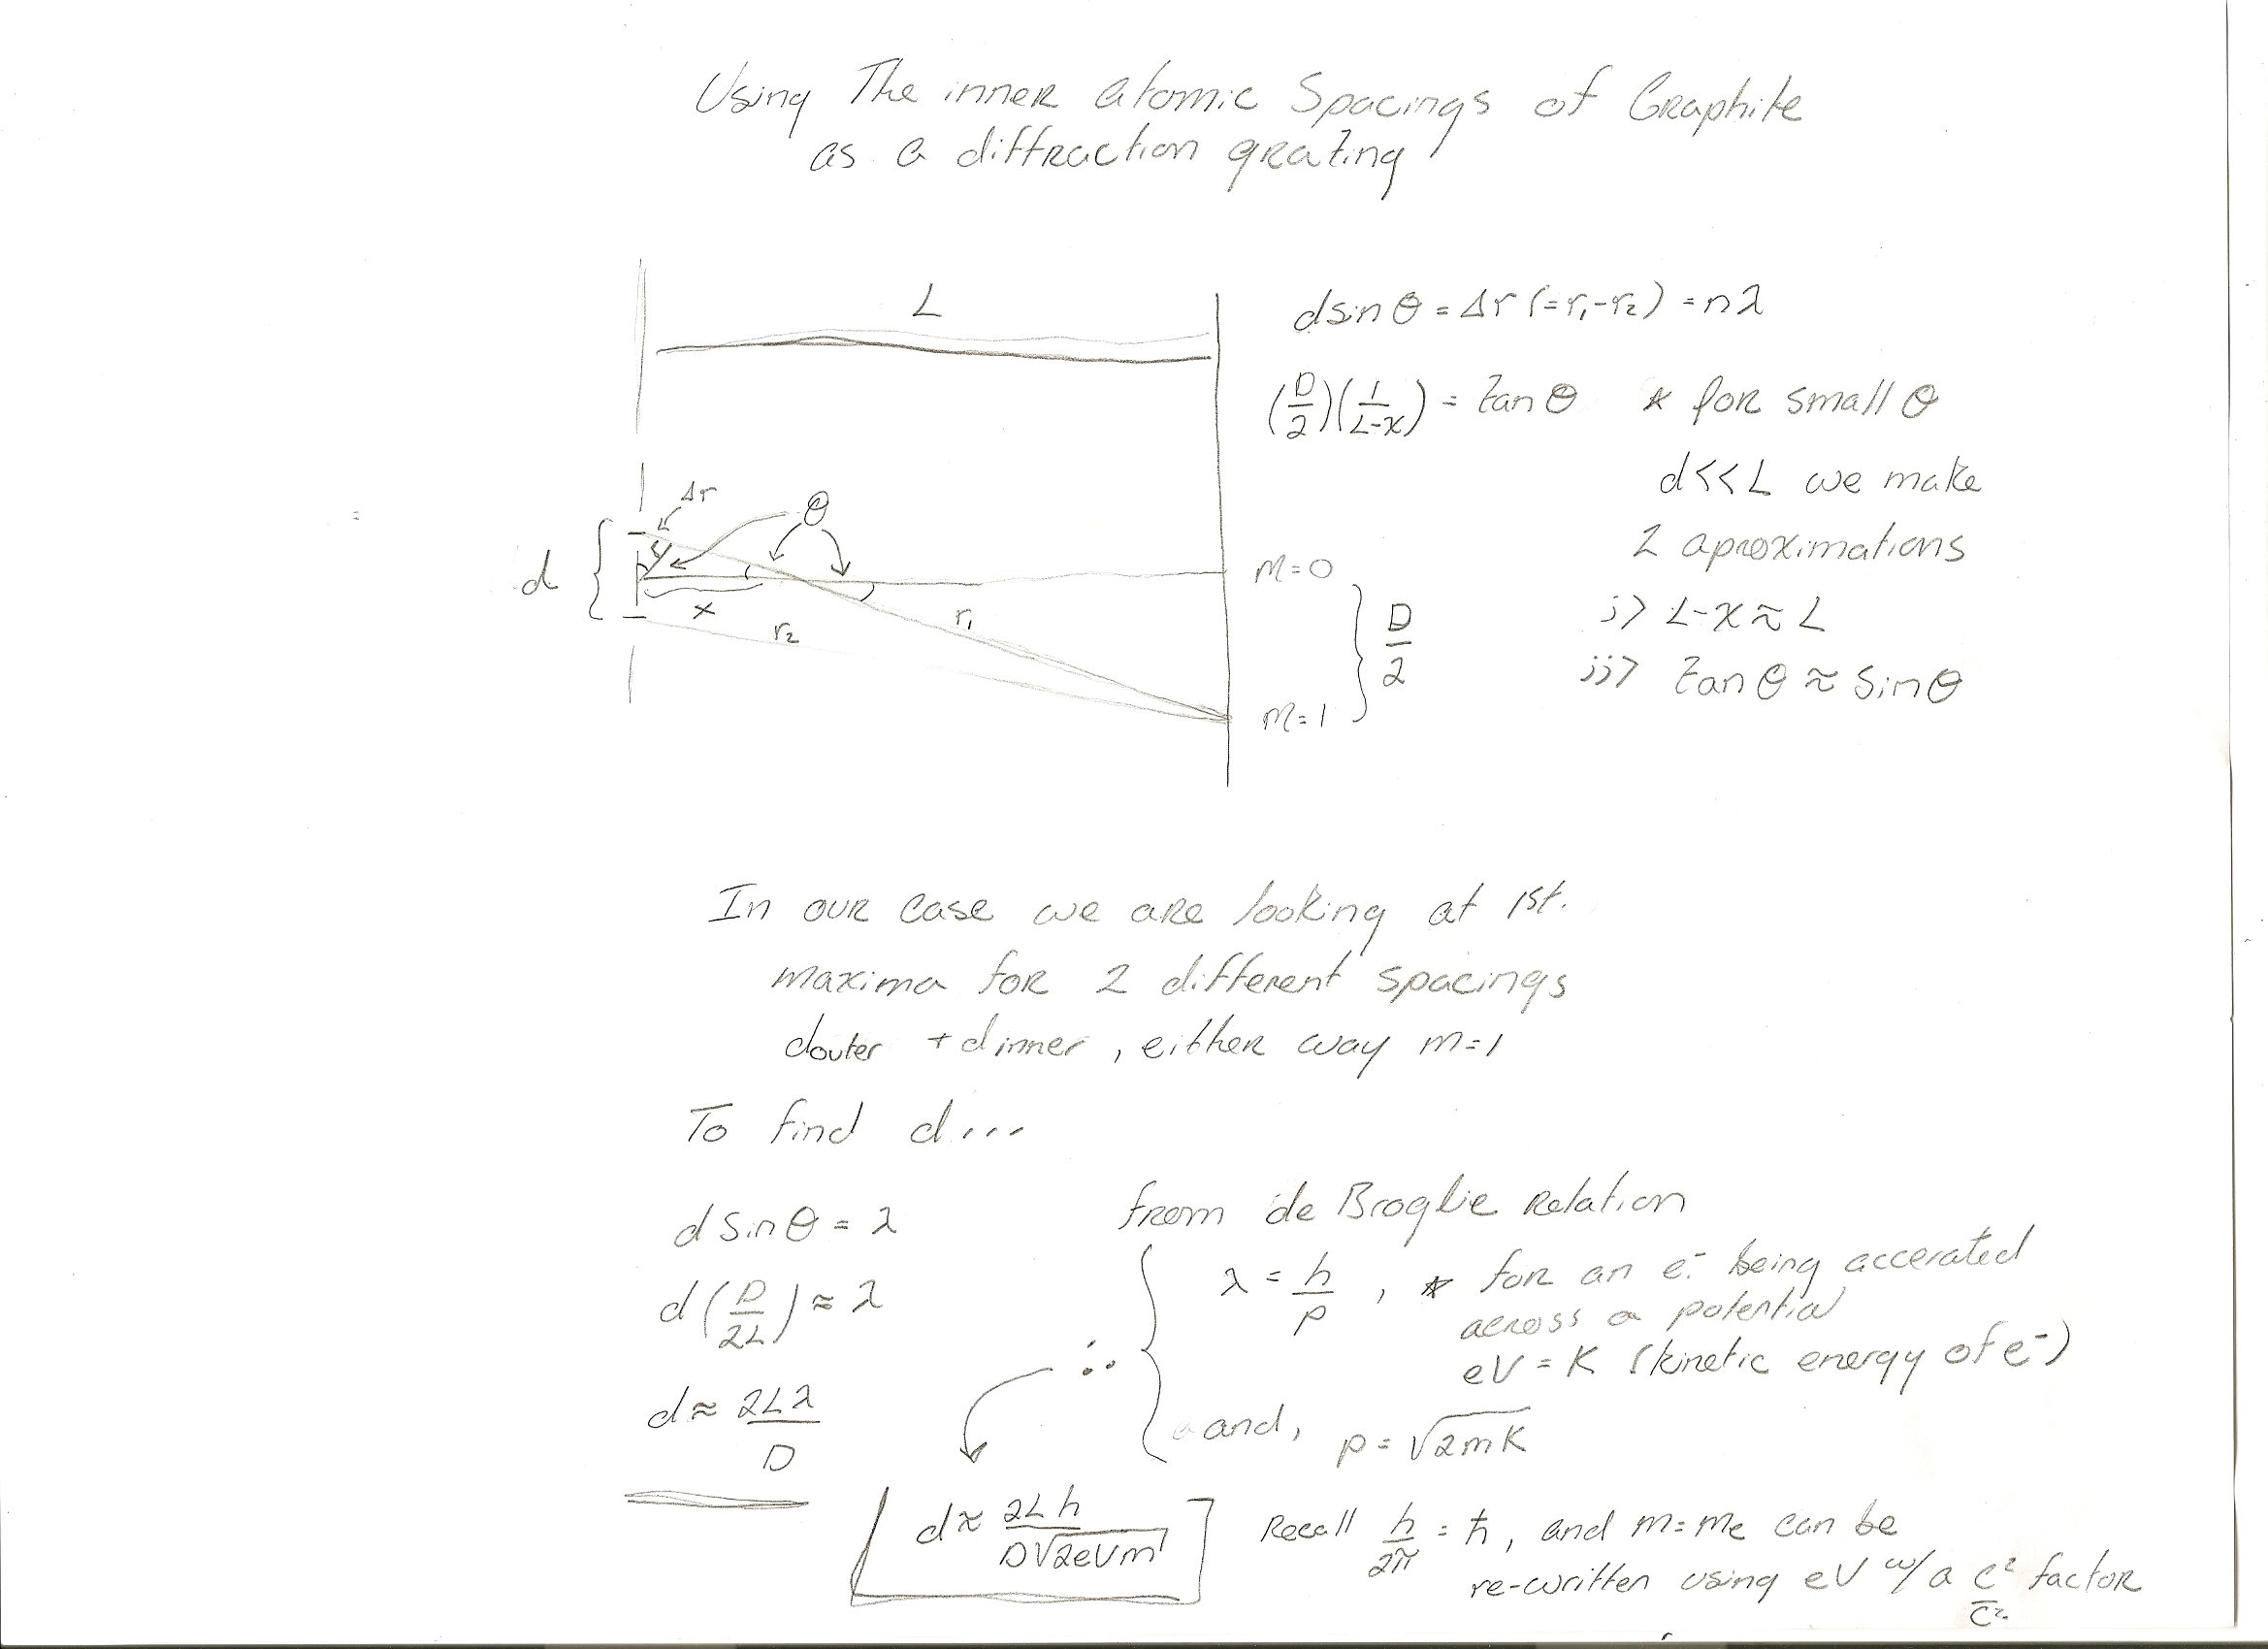 Using The inner atomic Spacings of Graphite
as a diffraction grating
L
d sin θ = Δr (= r₁-r₂) = nλ
(D/2)(1/L-x) = tan θ * for small θ
d<<L we make
2 aproximations
i> L-x ≈ L
ii> tan θ ≈ sin θ
Δr
θ
=
d
x
r₂
r₁
m=0
D/2
m=1
In our case we are looking at 1st.
maxima for 2 different spacings
douter + dinner, either way m=1
To find d...
d sin θ = λ
d(D/2L) ≈ λ
d ≈ 2Lλ/D
from de Broglie Relation
λ = h/p , * for an e⁻ being accerated
across a potential
eV = K (kinetic energy of e⁻)
and, p = √2mK
∴
d ≈ 2Lh/D√2eVm
Recall h/2π = ħ, and m=me can be
re-written using eV w/ a c²/c² factor